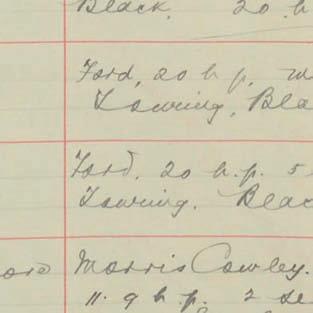 Black. 20 h
Ford, 20 h.p.
Touring, Bla
Ford, 20 h.p. 5
Touring. Blac
Morris Cowley.
11.9 h.p. 2 se